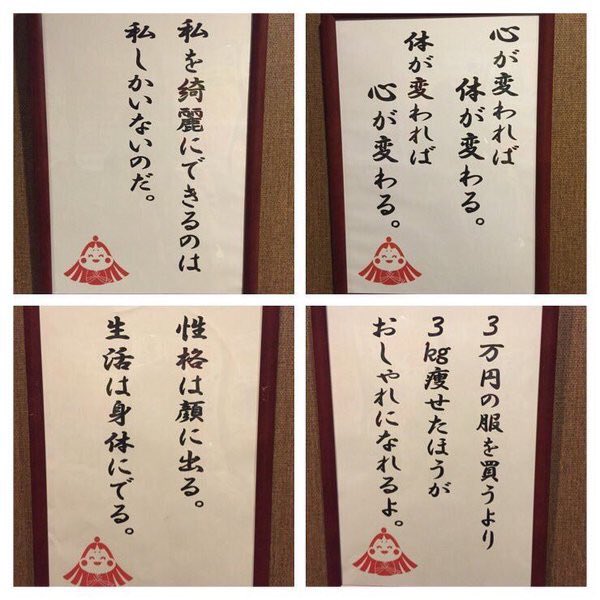 私を綺麗にできるのは
私しかいないのだ。
心が変われば
体が変わる。
体が変われば
心が変わる。
性格は顔に出る。
生活は身体にでる。
3万円の服を買うより
3kg痩せたほうが
おしゃれになれるよ。